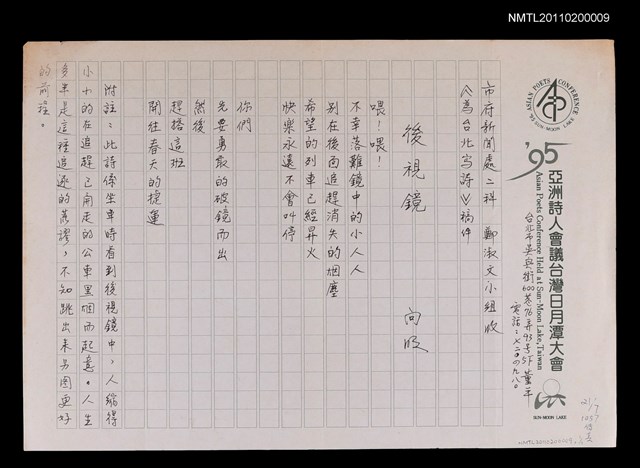 NMTL20110200009
ASIAN POETS CONFERENCE
'95 SUN-MOON LAKE
'95 亞洲詩人會議台灣日月潭大會
Asian Poets Conference Held at Sun-Moon Lake, Taiwan
台北市吳興街600巷76弄93號5F
SUN-MOON LAKE
市府新聞處二科 鄭淑文小組收
《為台北寫詩》稿件
後視鏡 向明
喂！喂！
不幸落難鏡中的小人人
別在後面追趕消失的烟塵
希望的列車已經昇火
快樂永遠不會叫停
你們
先要勇敢的破鏡而出
然後
趕搭這班
開往春天的捷運
附註：此詩係坐車時看到後視鏡中，人縮得
小小的在追趕已開走的公車黑烟而起意。人生
多半是這種追逐的荒謬，不知跳出來另圖更好
的前程。
NMTL20110200009